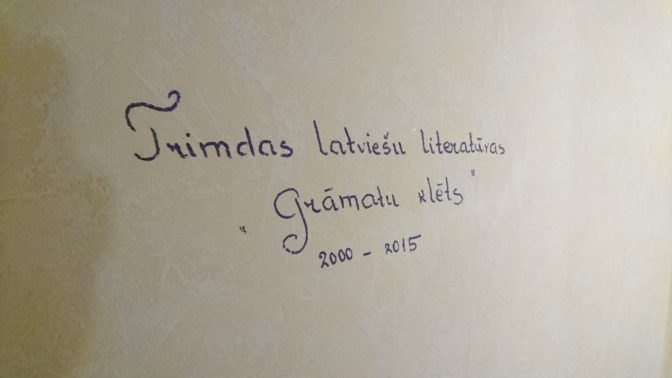 Trimdas latviešu literatūras
"Grāmatu klēts"
2000 - 2015